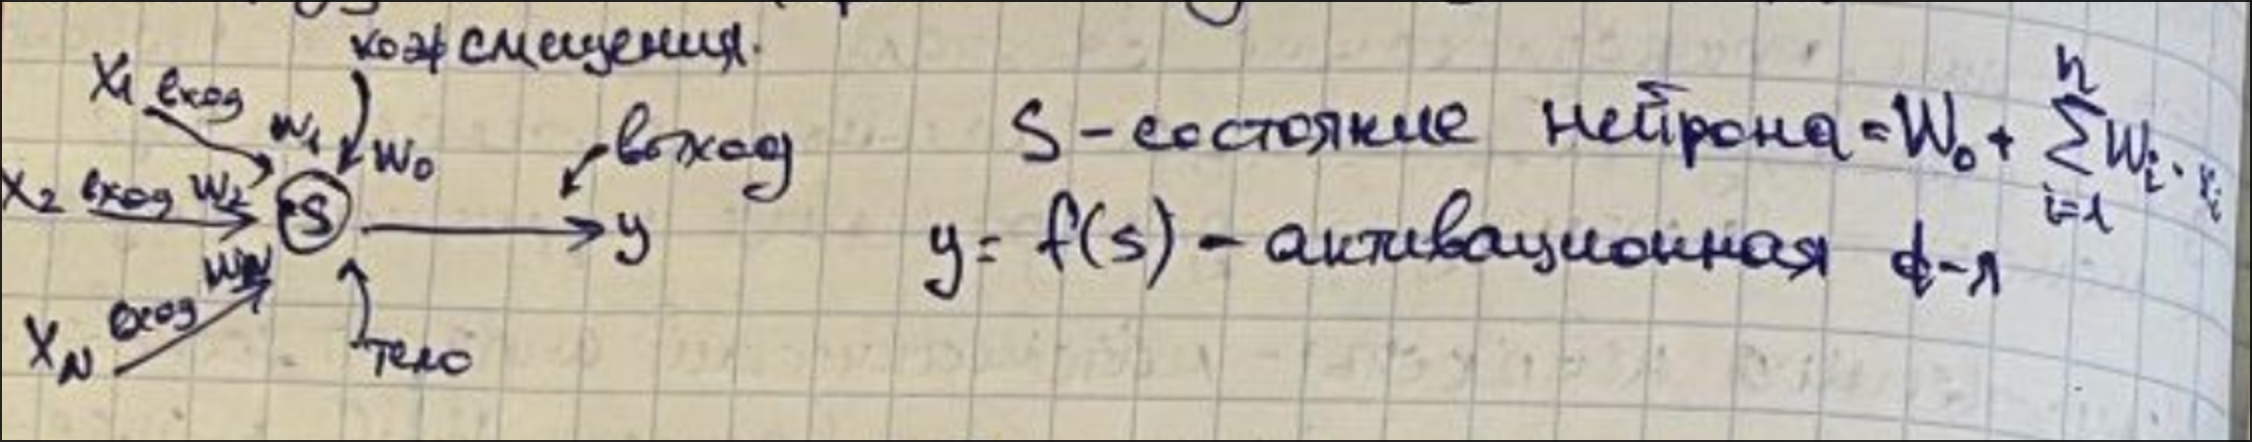 коэф смещения.
X₁ вход
W₁
W₀
выход
X₂ вход W₂
S
y
Wₙ
Xₙ вход
тело
S - состояние нейрона = W₀ + ∑ⁿᵢ₌₁ Wᵢ · xᵢ
y = f(s) - активационная ф-я